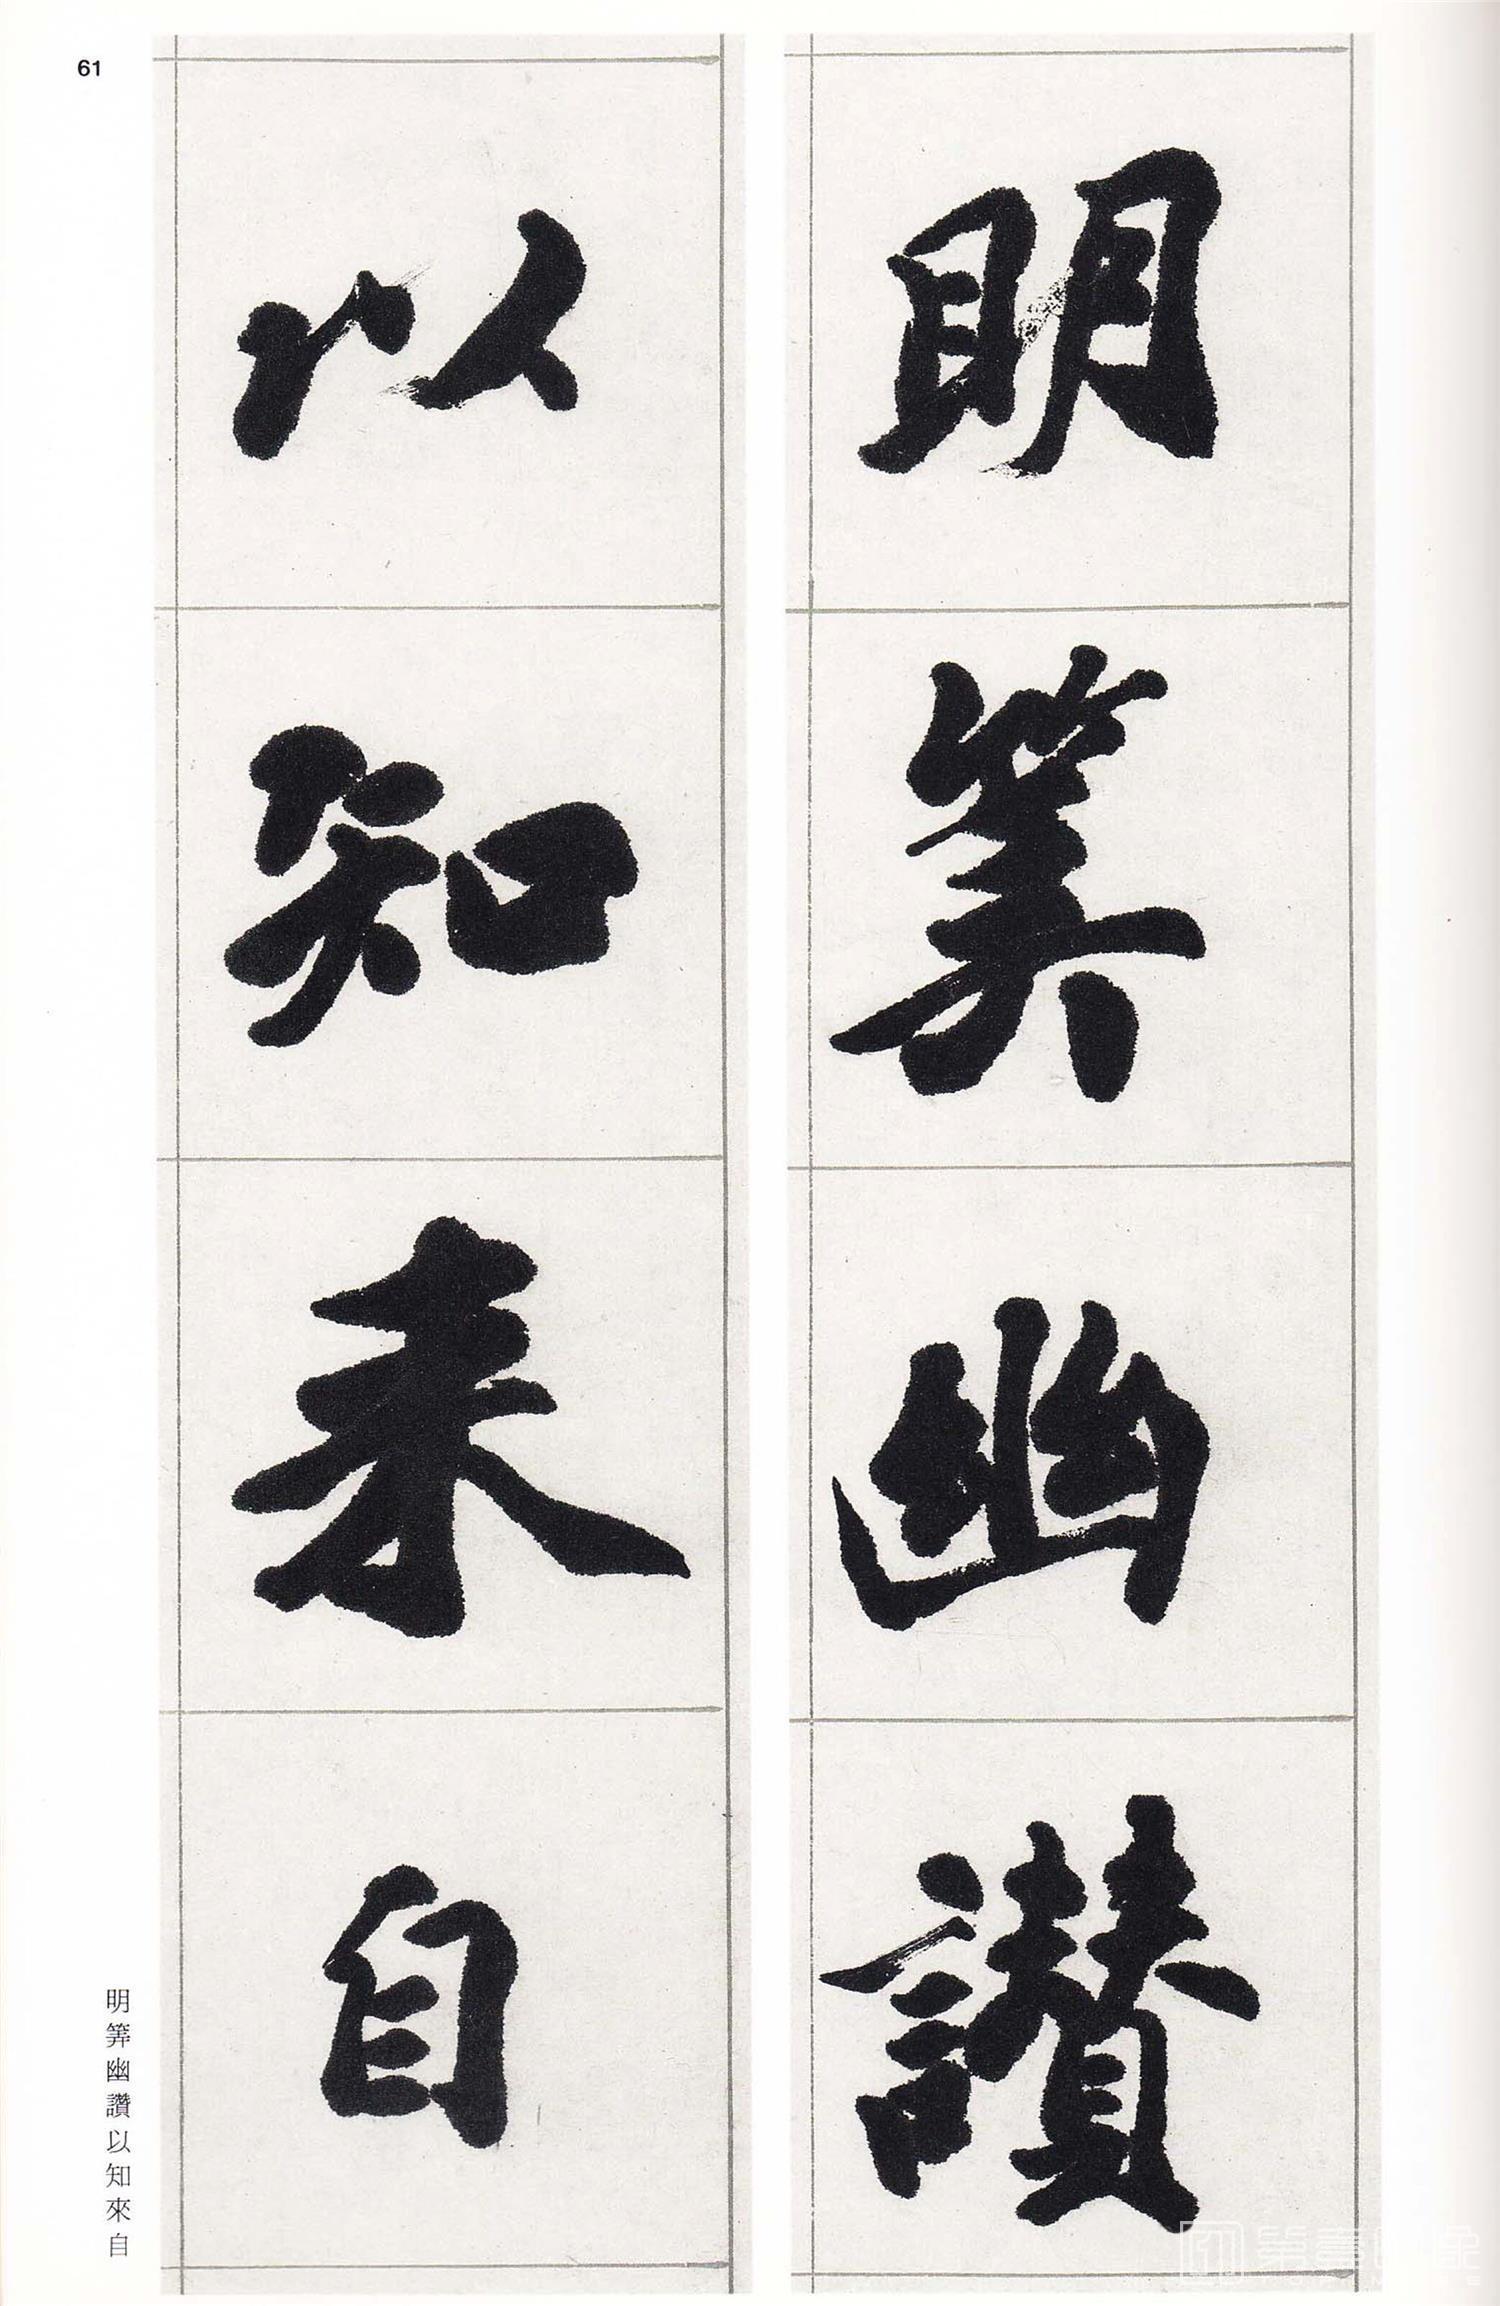 61
明筭幽讚
以知來自
明筭幽讚以知來自